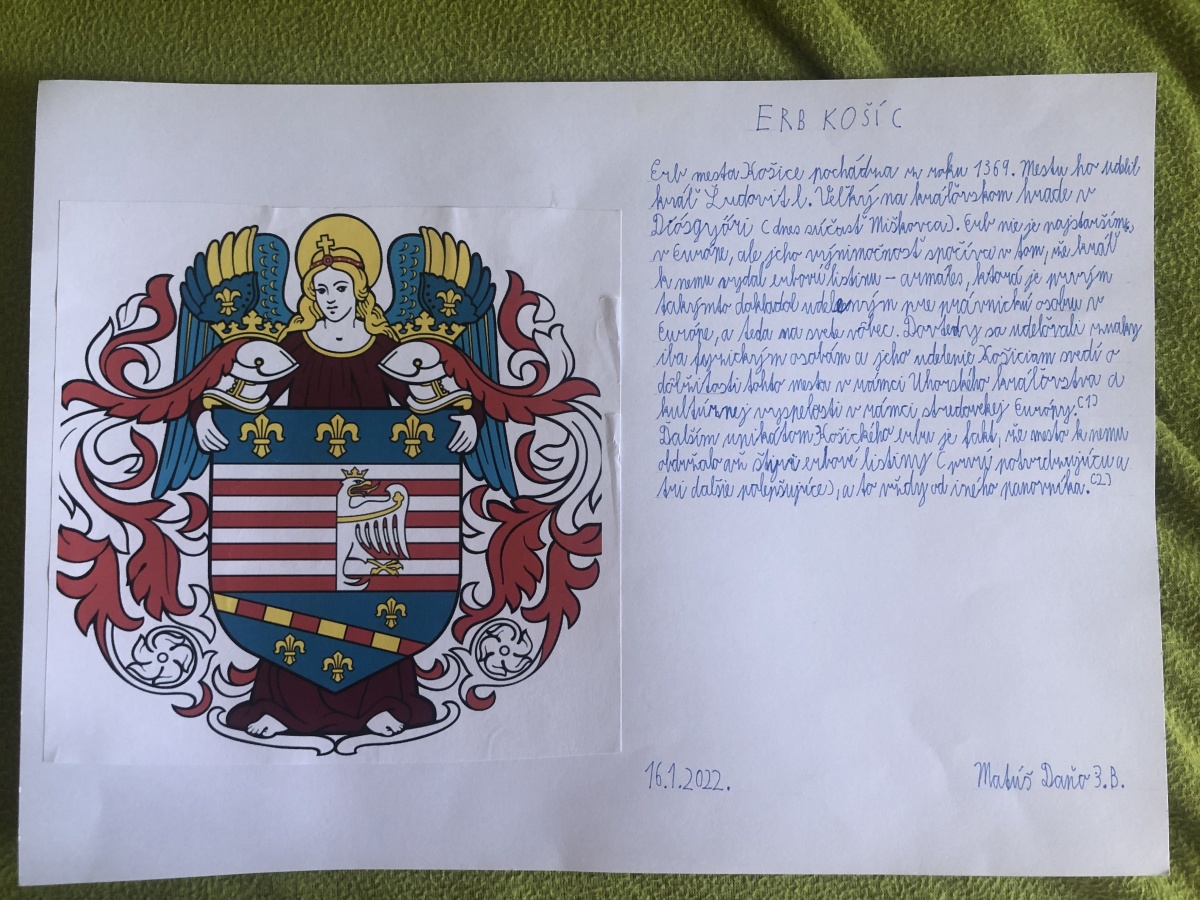 ERB KOŠÍC
Erb mesta Košice pochádza z roku 1369. Mestu ho udelil
kráľ Ľudovít I. Veľký na kráľovskom hrade v
Diósgyőri (dnes súčasť Miškovca). Erb nie je najstarším,
v Európe, ale jeho výnimočnosť spočíva v tom, že kráľ
k nemu vydal erbovú listinu – armáles, ktorá je prvým
takýmto dokladol udeleným pre právnickú osobu v
Európe, a teda na svete vôbec. Dovtedy sa udeľovali znaky
iba fyzickým osobám a jeho udelenie Košiciam svedčí o
dôležitosti tohto mesta v rámci Uhorského kráľovstva a
kultúrnej vyspelosti v rámci stredovekej Európy.(1)
Ďalším unikátom Košického erbu je fakt, že mesto k nemu
obdržalo až štyri erbové listiny (prvú potvrdzujúcu a
tri ďalšie polepšujúce), a to vždy od iného panovníka.(2)
16.1.2022.
Matúš Daňo 3.B.